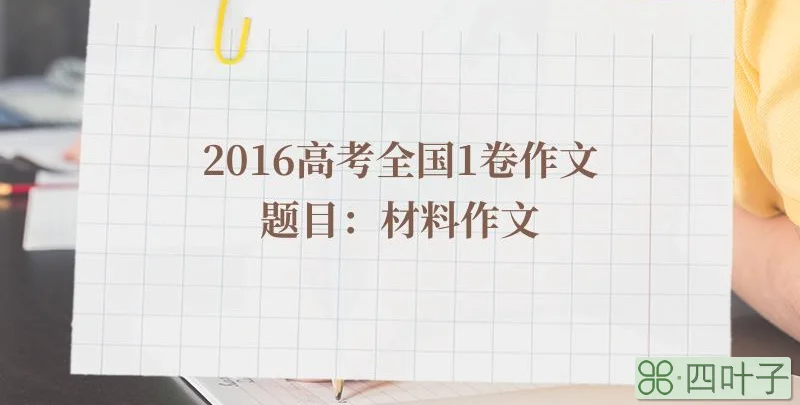 2016高考全国1卷作文
题目：材料作文
四叶子